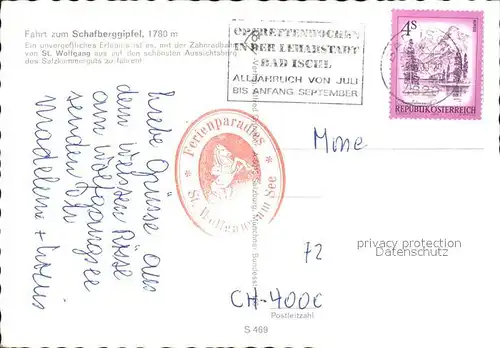 Fahrt zum Schafberggipfel, 1780 m
Ein unvergeßliches Erlebnis ist es, mit der Zahnradbahn
von St. Wolfgang aus auf den schönsten Aussichtsberg
des Salzkammerguts zu fahren!
OPERETTENWOCHEN
IN DER LEHARSTADT
BAD ISCHL
ALLJÄHRLICH VON JULI
BIS ANFANG SEPTEMBER
4S
REPUBLIK ÖSTERREICH
Liebe Grüsse aus
dem weissen Rössl
am Wolfgangsee
senden Ihr
Madeleine + Louis
Ferienparadies
St. Wolfgang am See
Mme
72
privacy protection
watermark
CH-4000
Postleitzahl
S 469